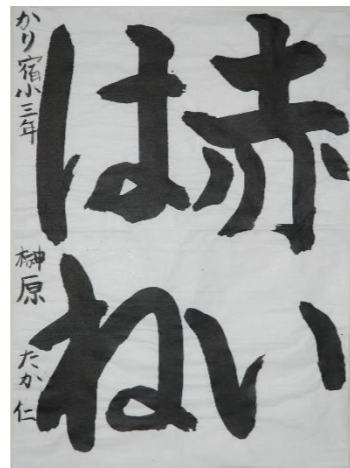 赤い
はね
かり宿小三年 榊原 たか仁